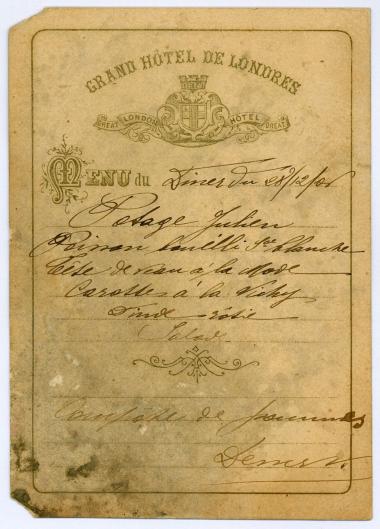 GRAND HÔTEL DE LONDRES
GREAT LONDON HÔTEL GREAT
MENU du Diner du 28/12/06
Potage Julien
Poisson bouilli Sce blanche
Tête de veau à la Mode
Carottes à la Vichy
Dinde rôtie
Salade
Compotes de pommes
Dessert